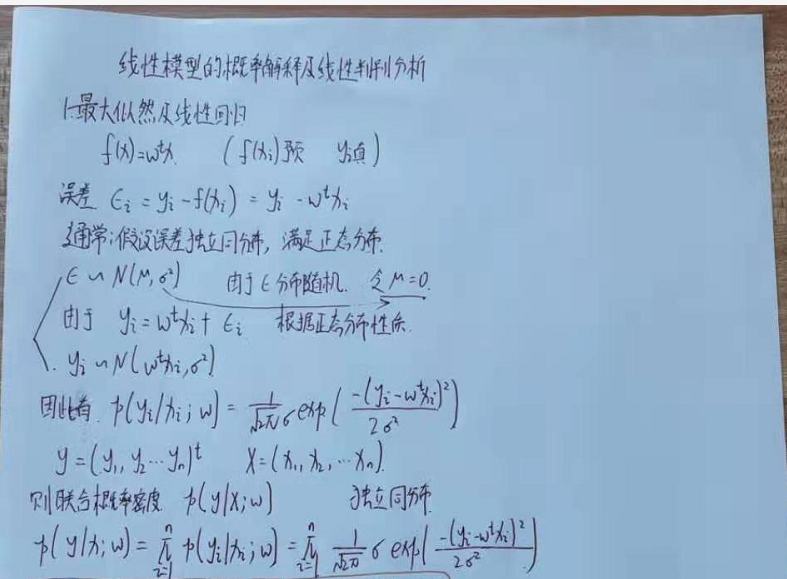 线性模型的概率解释及线性判别分析
1.最大似然及线性回归
f(x)=wᵗx. (f(xᵢ)预 yᵢ真)
误差 ϵᵢ = yᵢ - f(xᵢ) = yᵢ - wᵗxᵢ
通常:假设误差独立同分布, 满足正态分布.
ϵ ∼ N(μ, σ²) 由于ϵ分布随机. 令μ=0.
由于 yᵢ = wᵗxᵢ + ϵᵢ 根据正态分布性质.
yᵢ ∼ N(wᵗxᵢ, σ²)
因此有. p(yᵢ|xᵢ; w) = 1/√2π σ exp( -(yᵢ-wᵗxᵢ)² / 2σ² )
y = (y₁, y₂ ... yₙ)ᵗ X = (x₁, x₂, ... xₙ).
则联合概率密度 p(y|x; w) 独立同分布
p(y|x; w) = ∏ⁿᵢ₌₁ p(yᵢ|xᵢ; w) = ∏ⁿᵢ₌₁ 1/√2π σ exp( -(yᵢ-wᵗxᵢ)² / 2σ² )